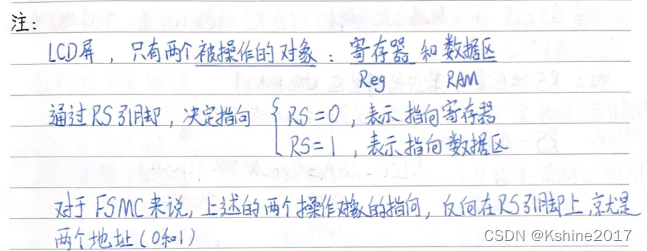 注：
LCD屏，只有两个被操作的对象：寄存器和数据区
Reg RAM
通过RS引脚，决定指向 { RS=0，表示指向寄存器
RS=1，表示指向数据区
对于FSMC来说，上述的两个操作对象的指向，反向在RS引脚上，就是
两个地址（0和1）
CSDN @Kshine2017